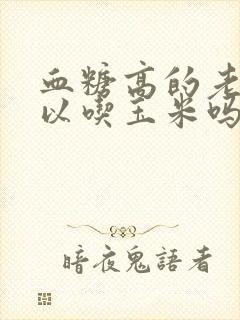 血糖高的老
以喫玉米吗
暗夜鬼語者